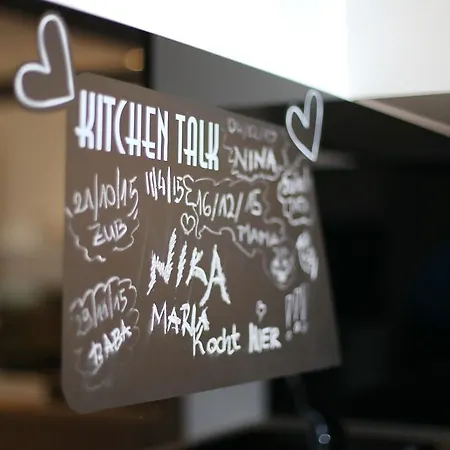 KITCHEN TALK
NINA
21/10/15
ZUB
11/4/15
16/12/15
MAMA
NIKA
29/11/15
BABA
MARIA
Kocht HIER !!!